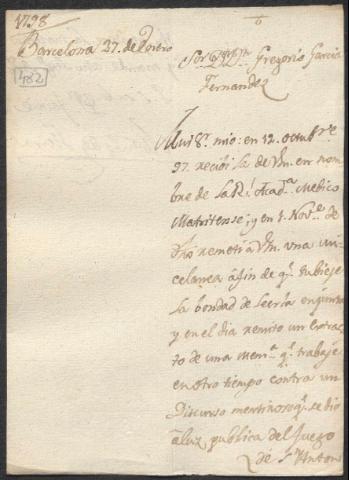 1798
Barcelona 27. de Enero
182
Sor. Dn. Gregorio Garcia
Fernandez
Mui Sr. mio: en 12. octubre
97. recibi la de Vm. en nom
bre de la Rl. Acada. Medico
Matritense; y en 1. Novre. de
dho remeti a Vm. una mi
celanea á fin de qe. tubiese
la bondad de leerla en junta
y en el dia remito un extrac
to de una mema. qe. trabaje
en otro tiempo contra un
Discurso mentiroso qe. se dio
à luz publica del fuego
de Sn. Anton